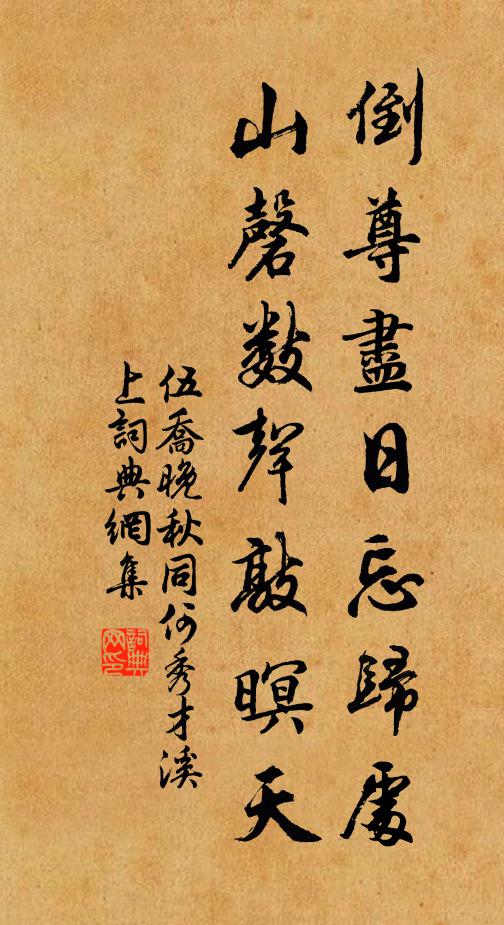 倒尊盡日忘歸處
山磬數聲敲暝天
伍喬晚秋同何秀才溪
上詞典網集
詞典
网印